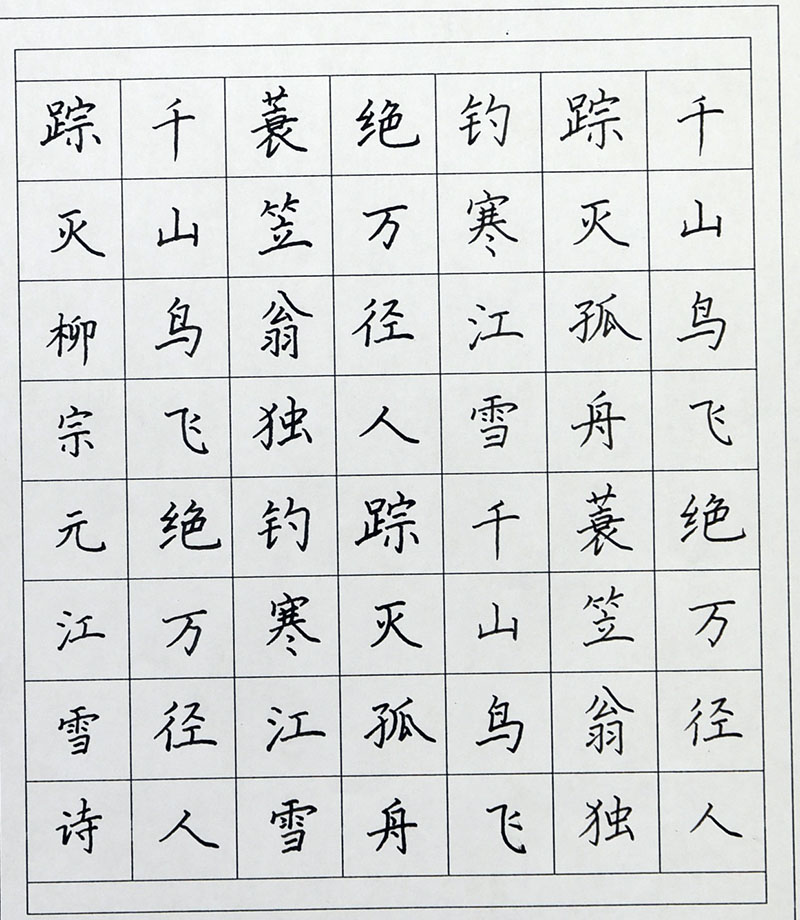 千山鸟飞绝万径人
踪灭孤舟蓑笠翁独
钓寒江雪千山鸟飞
绝万径人踪灭孤舟
蓑笠翁独钓寒江雪
千山鸟飞绝万径人
踪灭柳宗元江雪诗